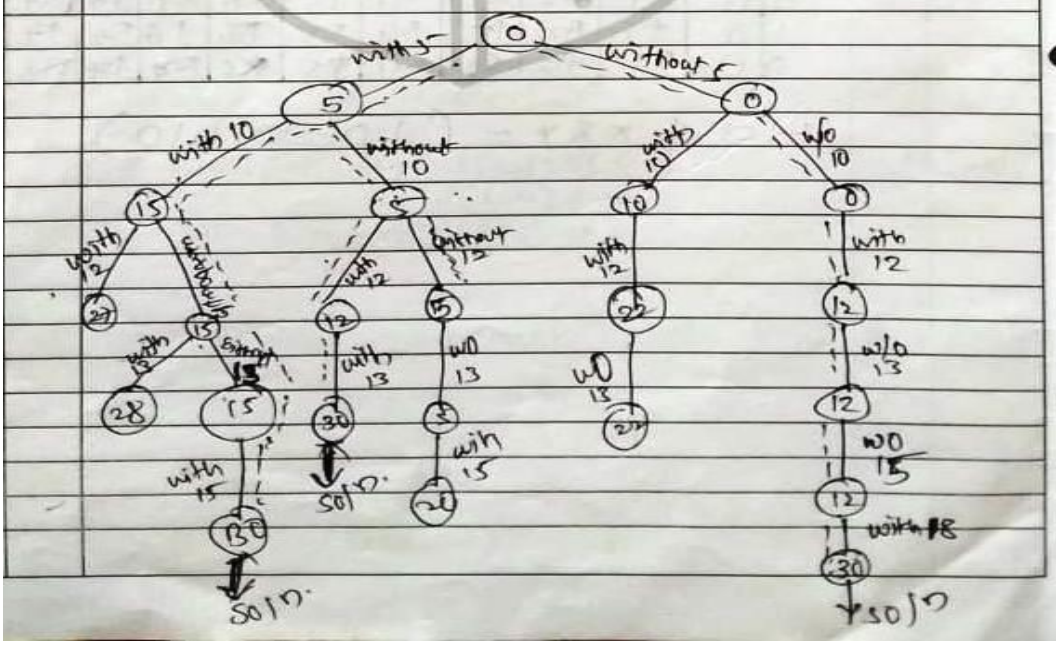 0
with 5 without 5
5 0
with 10 without 10 with 10 w/o 10
15 5 10 0
with 12 with 12 without 12 with 12 with 12
27 15 12 5 22 12
with 13 with 13 wo 13 wo 13 w/o 13
28 15 30 5 22 12
with 15 soln. with 15 wo 15
30 20 12
soln. with 18
30
soln